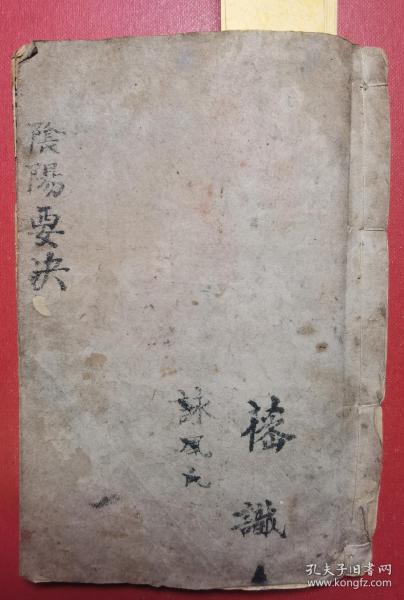 陰陽要决
詠風氏
識
孔夫子旧书网
www.kongfz.com